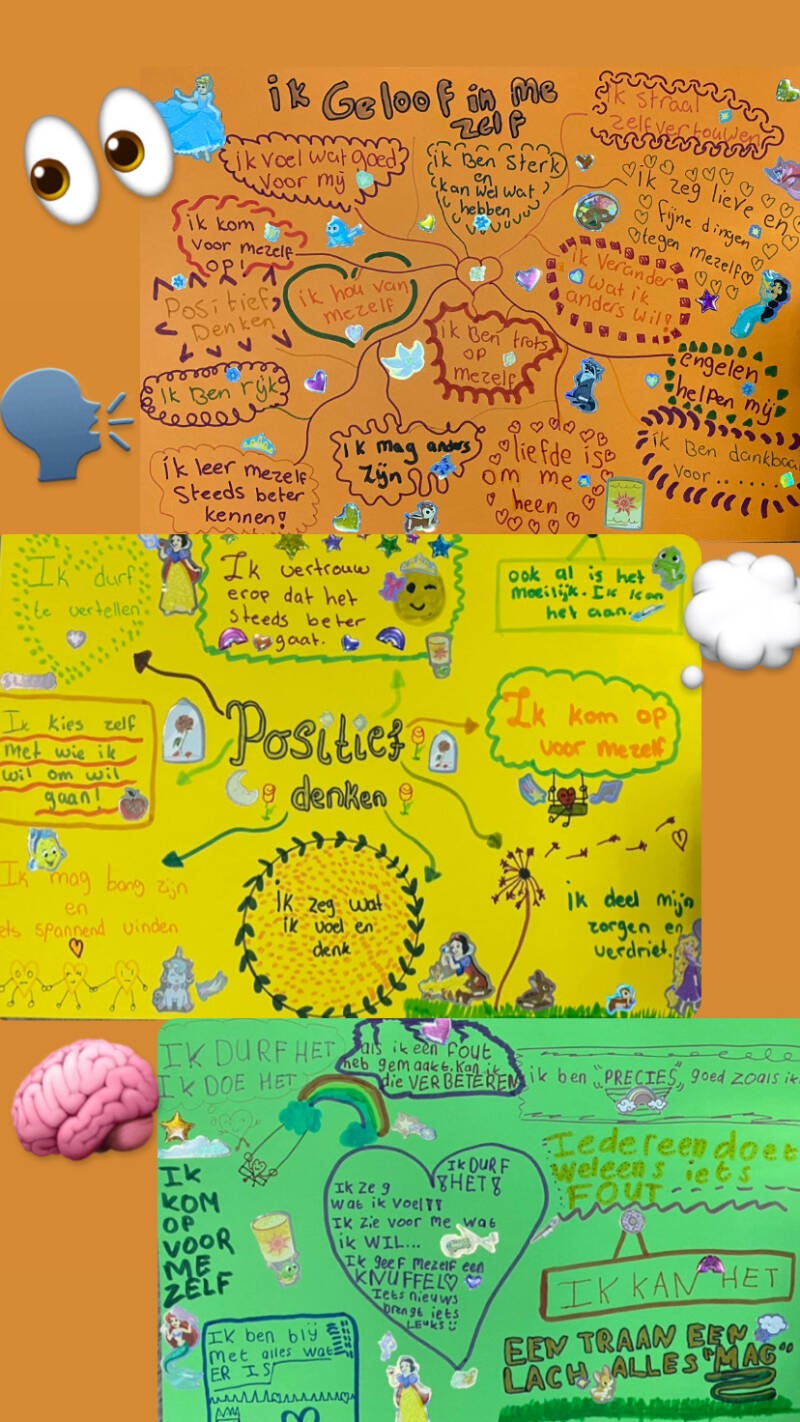 ik Geloof in me
zelf
ik straal
zelfvertouwen
ik voel wat goed
voor mij
ik Ben Sterk
en
kan wel wat
hebben
ik zeg lieve en
fijne dingen
tegen mezelf
ik kom
voor mezelf
op!
ik Verander
wat ik
anders wil!
Positief
Denken
ik hou van
mezelf
ik Ben trots
op
mezelf
engelen
helpen mij
ik Ben rijk
ik mag anders
zijn
liefde is
om me
heen
ik Ben dankbaa
voor.......
ik leer mezelf
Steeds beter
kennen!
Ik durf
te vertellen.
Ik vertrouw
erop dat het
steeds beter
gaat.
ook al is het
moeilijk. Ik kan
het aan.
Ik kies zelf
met wie ik
wil om wil
gaan!
Positief
denken
Ik kom op
voor mezelf
Ik mag bang zijn
en
ets spannend vinden
ik zeg wat
ik voel en
denk
ik deel mijn
zorgen en
verdriet.
IK DURF HET
IK DOE HET
als ik een FOUT
heb gemaakt. Kan ik
die VERBETEREN
ik ben "PRECIES" goed zoals ik
Iedereen doet
weleens iets
FOUT
IK
KOM
OP
VOOR
ME
ZELF
IK DURF
HET
Ik zeg
wat ik voel!!
Ik zie voor me wat
ik WIL...
Ik geef mezelf een
KNUFFEL
Iets nieuws
brengt iets
LEUKS
IK KAN HET
IK ben blij
met alles wat
ER IS
EEN TRAAN EEN
LACH ALLES "MAG"